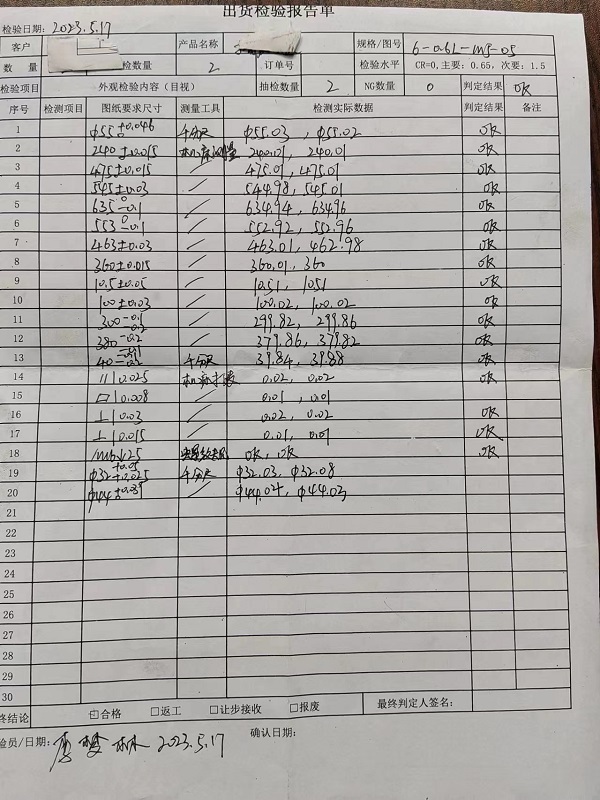 出货检验报告单
检验日期: 2023.5.17
客户 产品名称 规格/图号 6-0.6L-M5-05
数 量 检数量 2 订单号 检验水平 CR=0,主要: 0.65, 次要: 1.5
检验项目 外观检验内容 (目视) 抽检数量 2 NG数量 0 判定结果 OK
序号 检测项目 图纸要求尺寸 测量工具 检测实际数据 判定结果 备注
1 φ55 +0.046 千分尺 φ55.03, φ55.02 OK
2 240±0.015 机床测量 240.01, 240.01 OK
3 475±0.015 / 475.01, 475.01 OK
4 545±0.03 / 544.98, 545.01 OK
5 635 0 -0.1 / 634.94, 634.96 OK
6 553 0 -0.1 / 552.92, 552.96 OK
7 463±0.03 / 463.01, 462.98 OK
8 360±0.015 / 360.01, 360 OK
9 10.5±0.05 / 10.51, 10.51 OK
10 100±0.03 / 100.02, 100.02 OK
11 300 -0.1 -0.2 / 299.82, 299.86 OK
12 380 -0.2 / 379.86, 379.82 OK
13 40 -0.1 -0.2 千分尺 39.84, 39.88 OK
14 // 0.025 机床打表 0.02, 0.02 OK
15 □ 0.008 / 0.01, 0.01
16 ⊥ 0.03 / 0.02, 0.02 OK
17 ⊥ 0.015 / 0.01, 0.01 OK
18 M6↓25 OK, OK OK
19 φ32 +0.05 +0.025 千分尺 φ32.03, φ32.08
20 φ44 +0.039 / φ44.04, φ44.03
21
22
23
24
25
26
27
28
29
30
终结论 ☑合格 □返工 □让步接收 □报废 最终判定人签名:
验员/日期: 2023.5.17 确认日期: